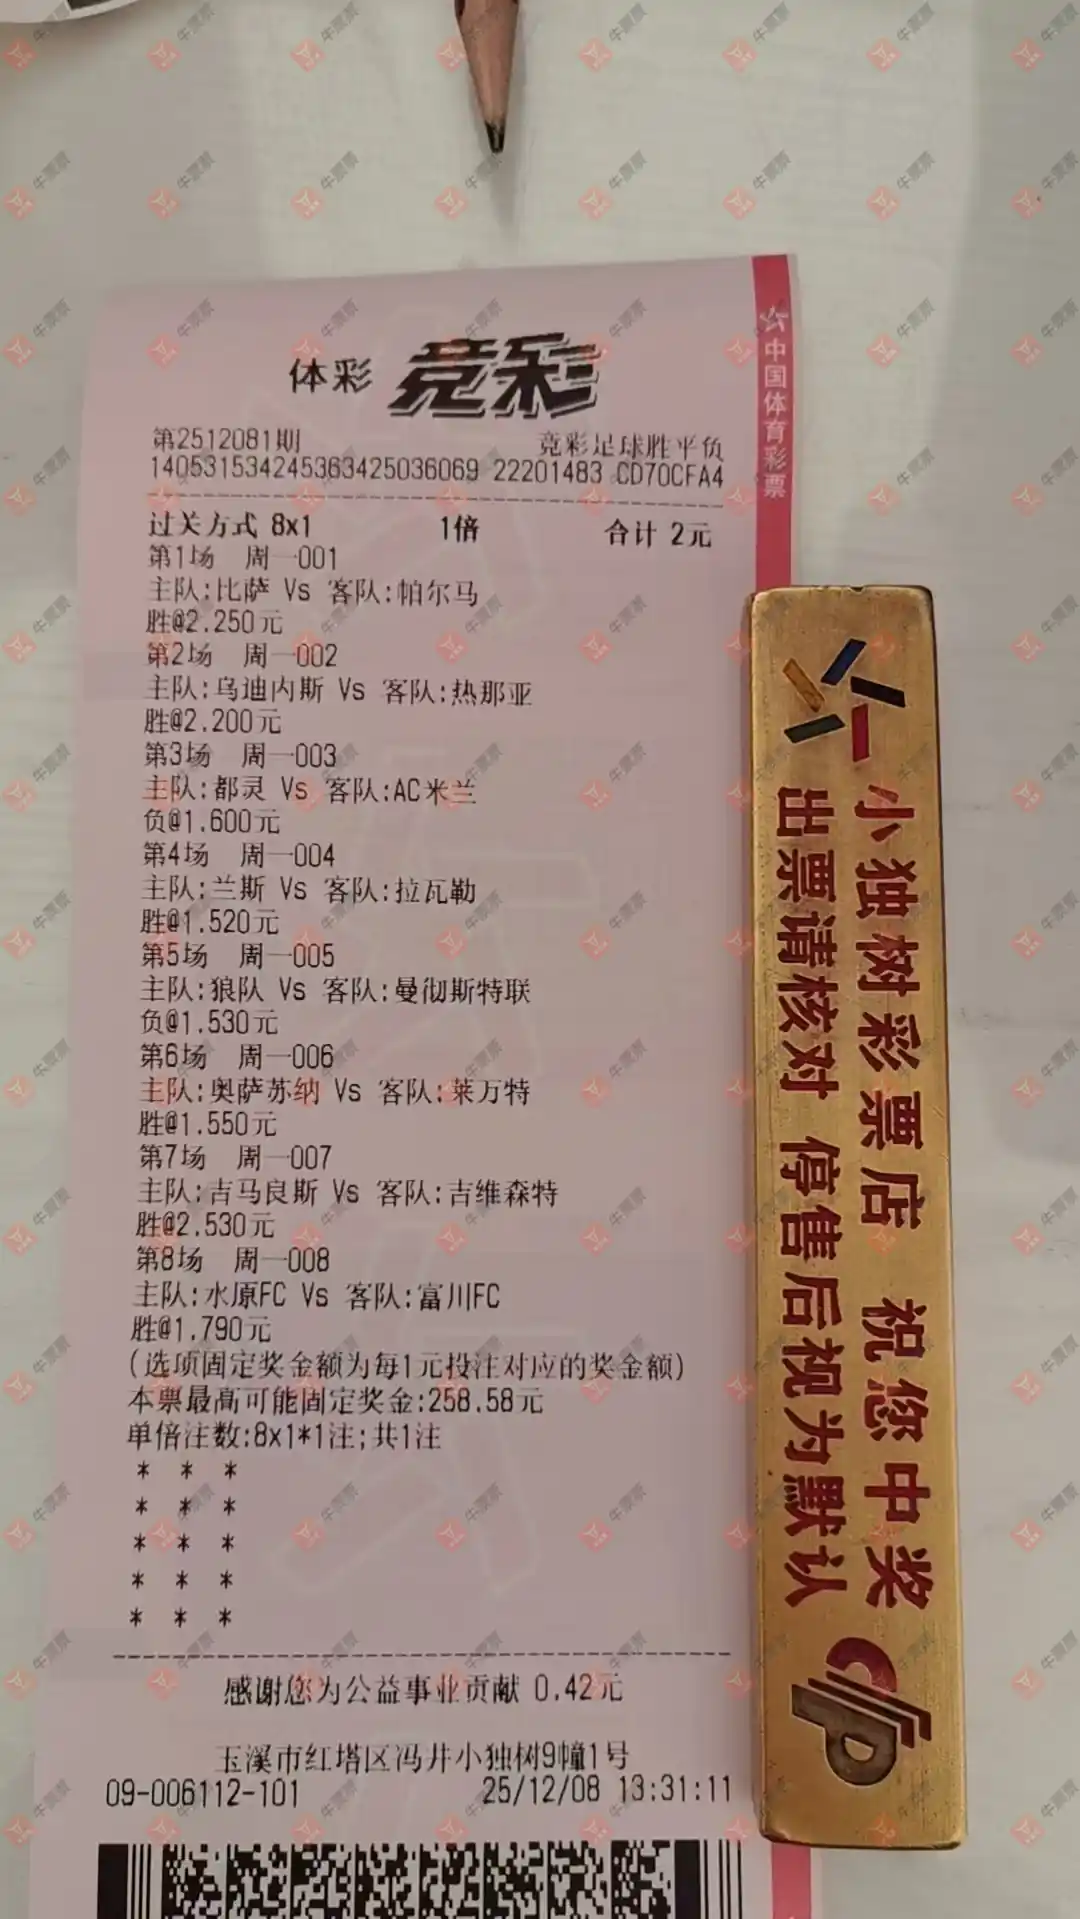 体彩 竞彩
第2512081期 竞彩足球胜平负
140531534245363425036069 22201483 CD70CFA4
过关方式 8x1 1倍 合计 2元
第1场 周一001
主队:比萨 Vs 客队:帕尔马
胜@2.250元
第2场 周一002
主队:乌迪内斯 Vs 客队:热那亚
胜@2.200元
第3场 周一003
主队:都灵 Vs 客队:AC米兰
负@1.600元
第4场 周一004
主队:兰斯 Vs 客队:拉瓦勒
胜@1.520元
第5场 周一005
主队:狼队 Vs 客队:曼彻斯特联
负@1.530元
第6场 周一006
主队:奥萨苏纳 Vs 客队:莱万特
胜@1.550元
第7场 周一007
主队:吉马良斯 Vs 客队:吉维森特
胜@2.530元
第8场 周一008
主队:水原FC Vs 客队:富川FC
胜@1.790元
(选项固定奖金额为每1元投注对应的奖金额)
本票最高可能固定奖金:258.58元
单倍注数:8x1*1注;共1注
* * *
* * *
* * *
* * *
* * *
感谢您为公益事业贡献 0.42元
玉溪市红塔区冯井小独树9幢1号
09-006112-101 25/12/08 13:31:11
中国体育彩票
小独树彩票店 祝您中奖
出票请核对 停售后视为默认
牛票票